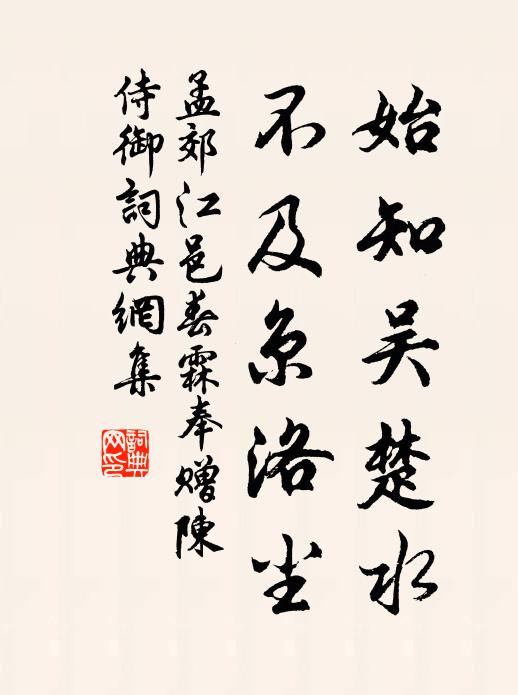 始知吴楚水
不及京洛尘
孟郊江邑春霖奉赠陳
侍御詞典網集
詞典
网印